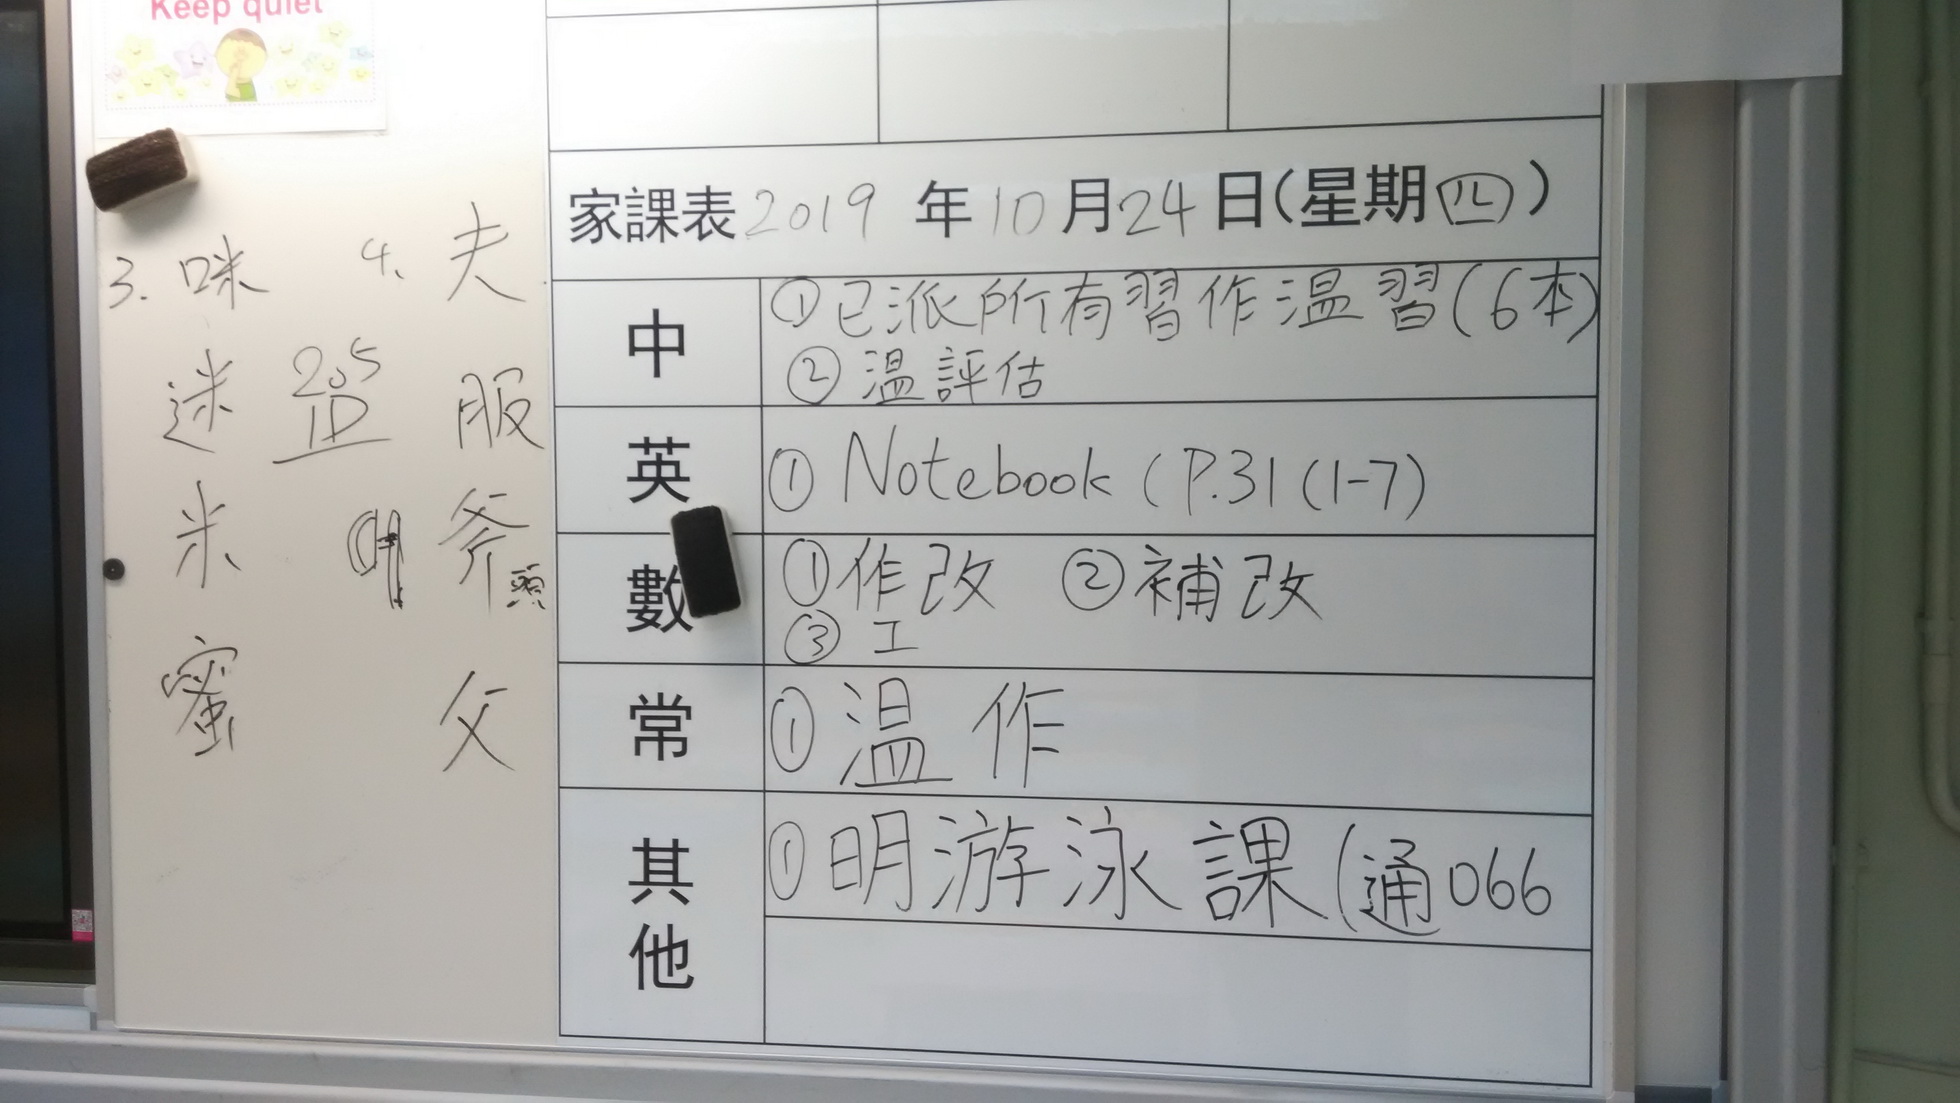 Keep quiet
3. 咪
迷
米
蜜
2.5
1D
4. 夫
服
斧頭
父
家課表2019年10月24日(星期四)
中
①已派所有習作溫習(6本)
②溫評估
英
① Notebook (P.31 (1-7)
數
①作改 ②補改
③工
常
①溫作
其他
①明游泳課(通066